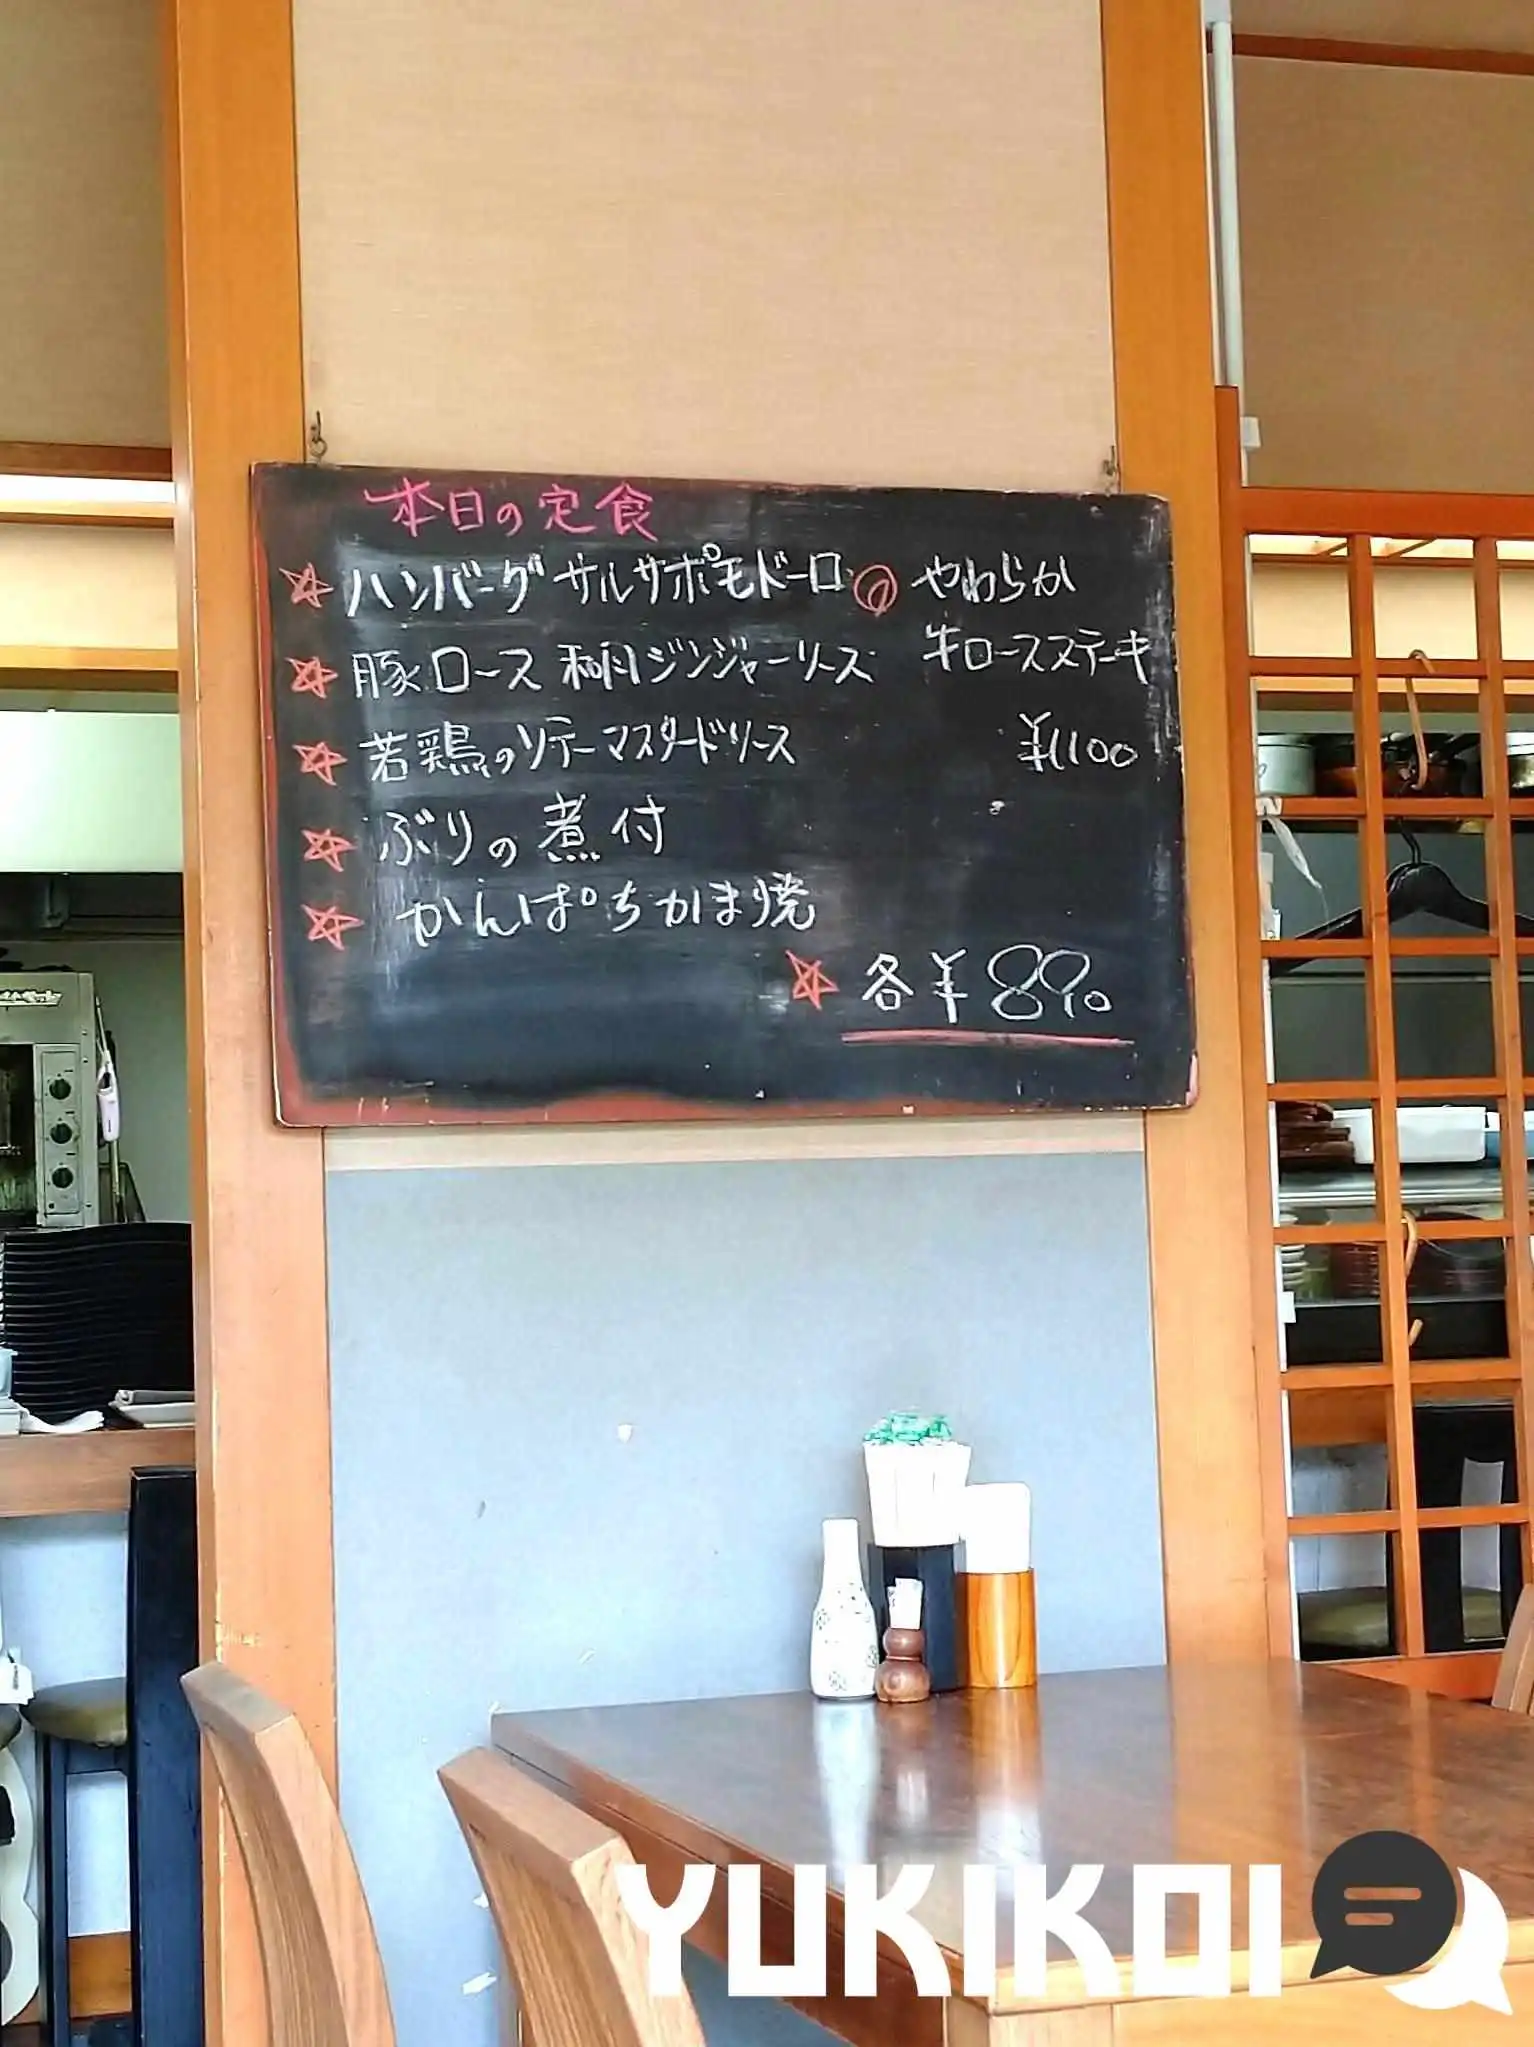 本日の定食
ハンバーグ サルサポモドーロ
豚ロース 和風ジンジャーソース
若鶏のソテーマスタードソース
ぶりの煮付
かんぱちかま焼
やわらか
牛ロースステーキ
¥1100
各¥890
YUKIKOI